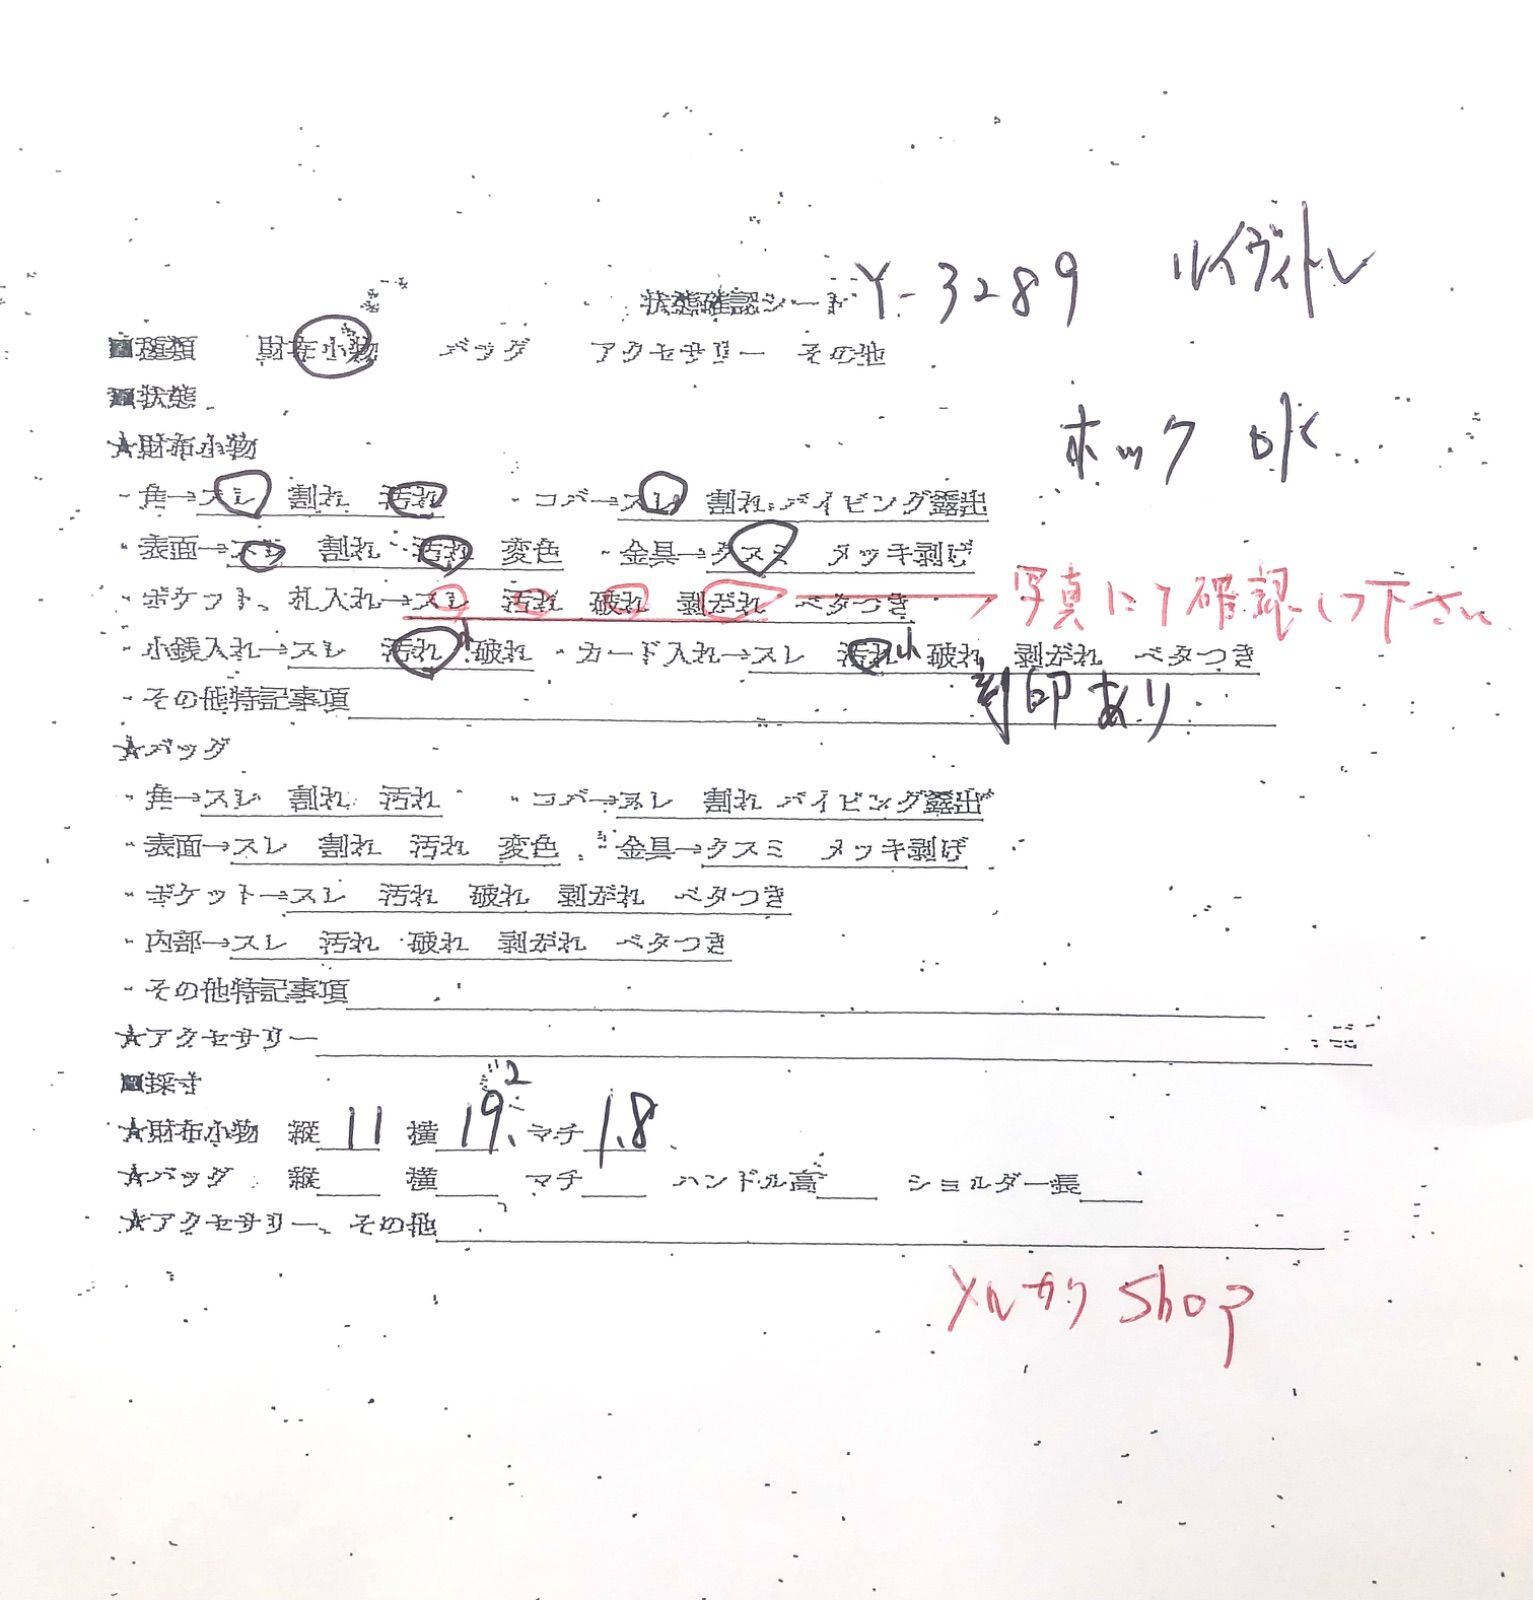 状態確認シート Y-3289 ルイヴィトン
■種類 財布小物 バッグ アクセサリー その他
■状態
ホック OK
★財布小物
・角→スレ 割れ 汚れ ・コバ→スレ 割れ パイピング露出
・表面→スレ 割れ 汚れ 変色 ・金具→クスミ メッキ剥げ
・ポケット、札入れ→スレ 汚れ 破れ 剥がれ ベタつき 写真にて確認して下さい
・小銭入れ→スレ 汚れ小 破れ ・カード入れ→スレ 汚れ小 破れ 剥がれ ベタつき
・その他特記事項 刻印あり
★バッグ
・角→スレ 割れ 汚れ ・コバ→スレ 割れ パイピング露出
・表面→スレ 割れ 汚れ 変色 ・金具→クスミ メッキ剥げ
・ポケット→スレ 汚れ 破れ 剥がれ ベタつき
・内部→スレ 汚れ 破れ 剥がれ ベタつき
・その他特記事項
★アクセサリー
■採寸
★財布小物 縦 11 横 19.2 マチ 1.8
★バッグ 縦 横 マチ ハンドル高 ショルダー長
★アクセサリー、その他
メルカリ Shop